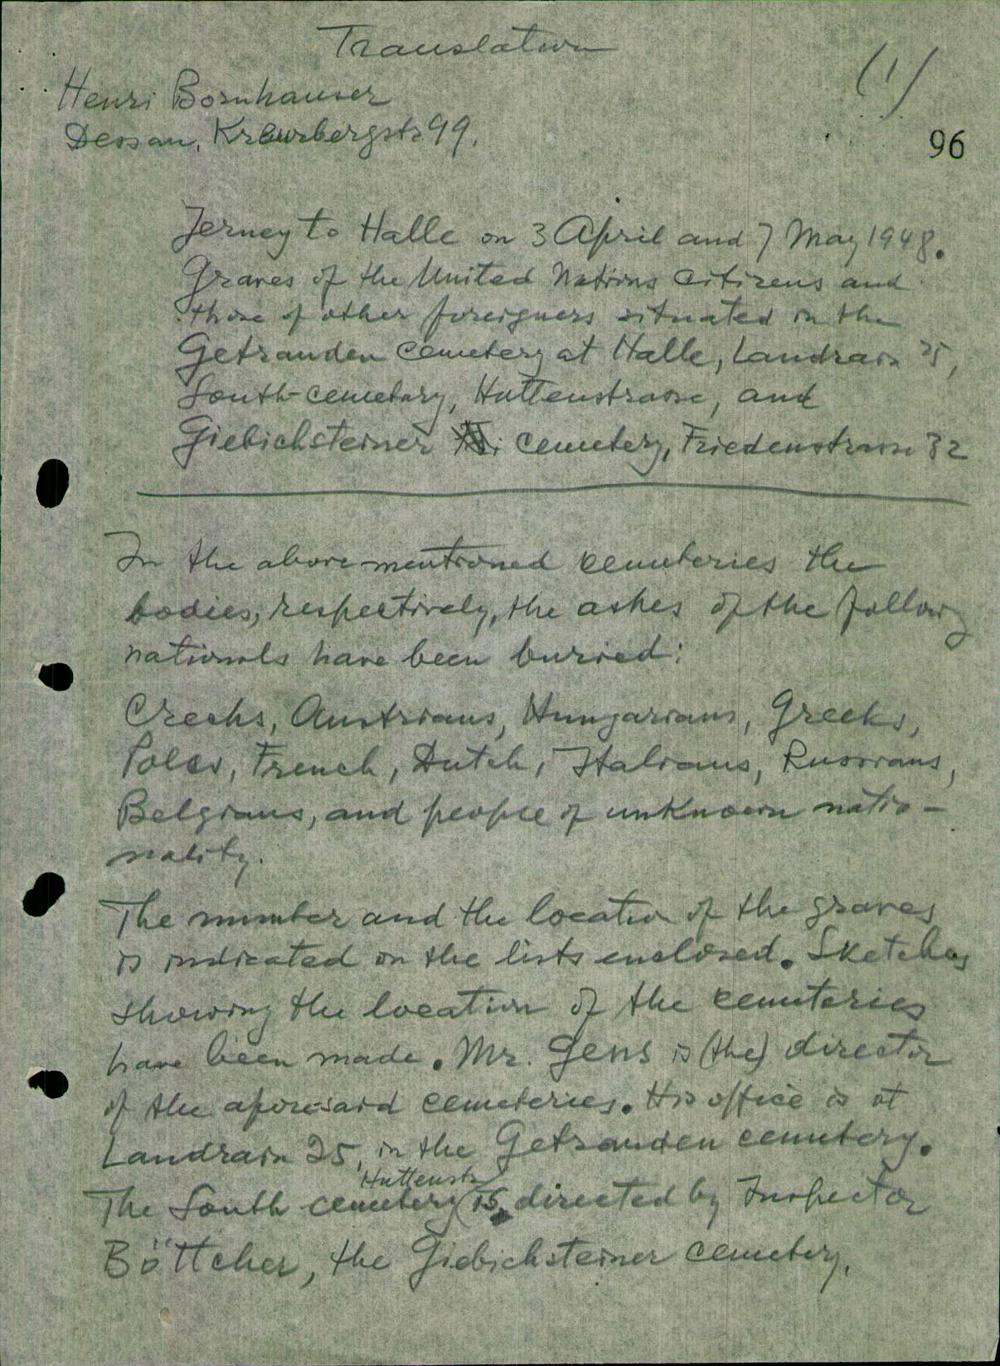 Translation
(1)
Henri Bornhauser
Dessau, Kreuzbergstr 99.
96
Jerney to Halle on 3 April and 7 May 1948.
Graves of the United Nations citizens and
those of other foreigners situated in the
Getrauden cemetery at Halle, Landrain 25,
South-cemetary, Huttenstrasse, and
Giebichsteiner cemetery, Friedenstrasse 32
In the above mentioned cemeteries the
bodies, respectively, the ashes of the following
nationals have been buried:
Czechs, Austrians, Hungarians, Greeks,
Poles, French, Dutch, Italians, Russians,
Belgians, and people of unknown natio-
nality.
The number and the location of the graves
is indicated on the lists enclosed. Sketches
showing the location of the cemeteries
have been made. Mr. Gens is (the) director
of the aforesaid cemeteries. His office is at
Landrain 25, in the Getrauden cemetery.
Huttenstr
The South cemetery is directed by Inspector
Böttcher, the Giebichsteiner cemetery,